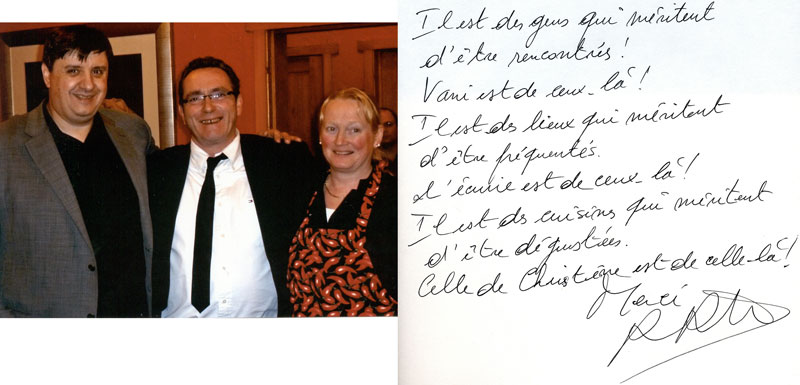 Il est des gens qui méritent
d'être rencontrés !
Vani est de ceux-là !
Il est des lieux qui méritent
d'être fréquentés.
L'écurie est de ceux-là !
Il est des cuisines qui méritent
d'être dégustées.
Celle de Christiène est de celle-là !
Merci